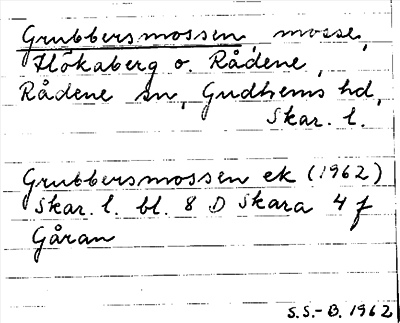 Grubbersmossen mosse,
Flökaberg o. Rådene,
Rådene sn, Gudhems hd,
Skar. l.
Grubbersmossen ek (1962)
Skar. l. bl. 8 D Skara 4 f
Gåran
S.S.-B. 1962